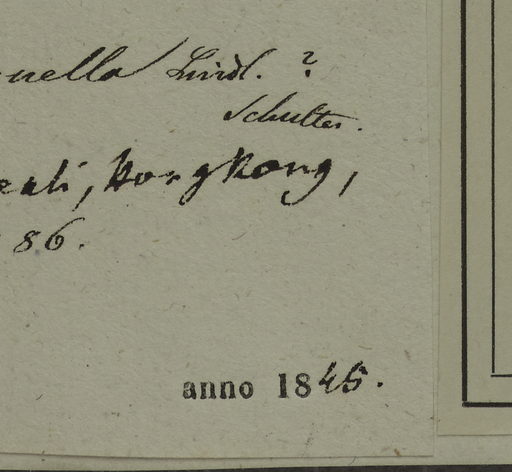 nella Lindl. ?
Schulter.
Hongkong,
86.
anno 1845.